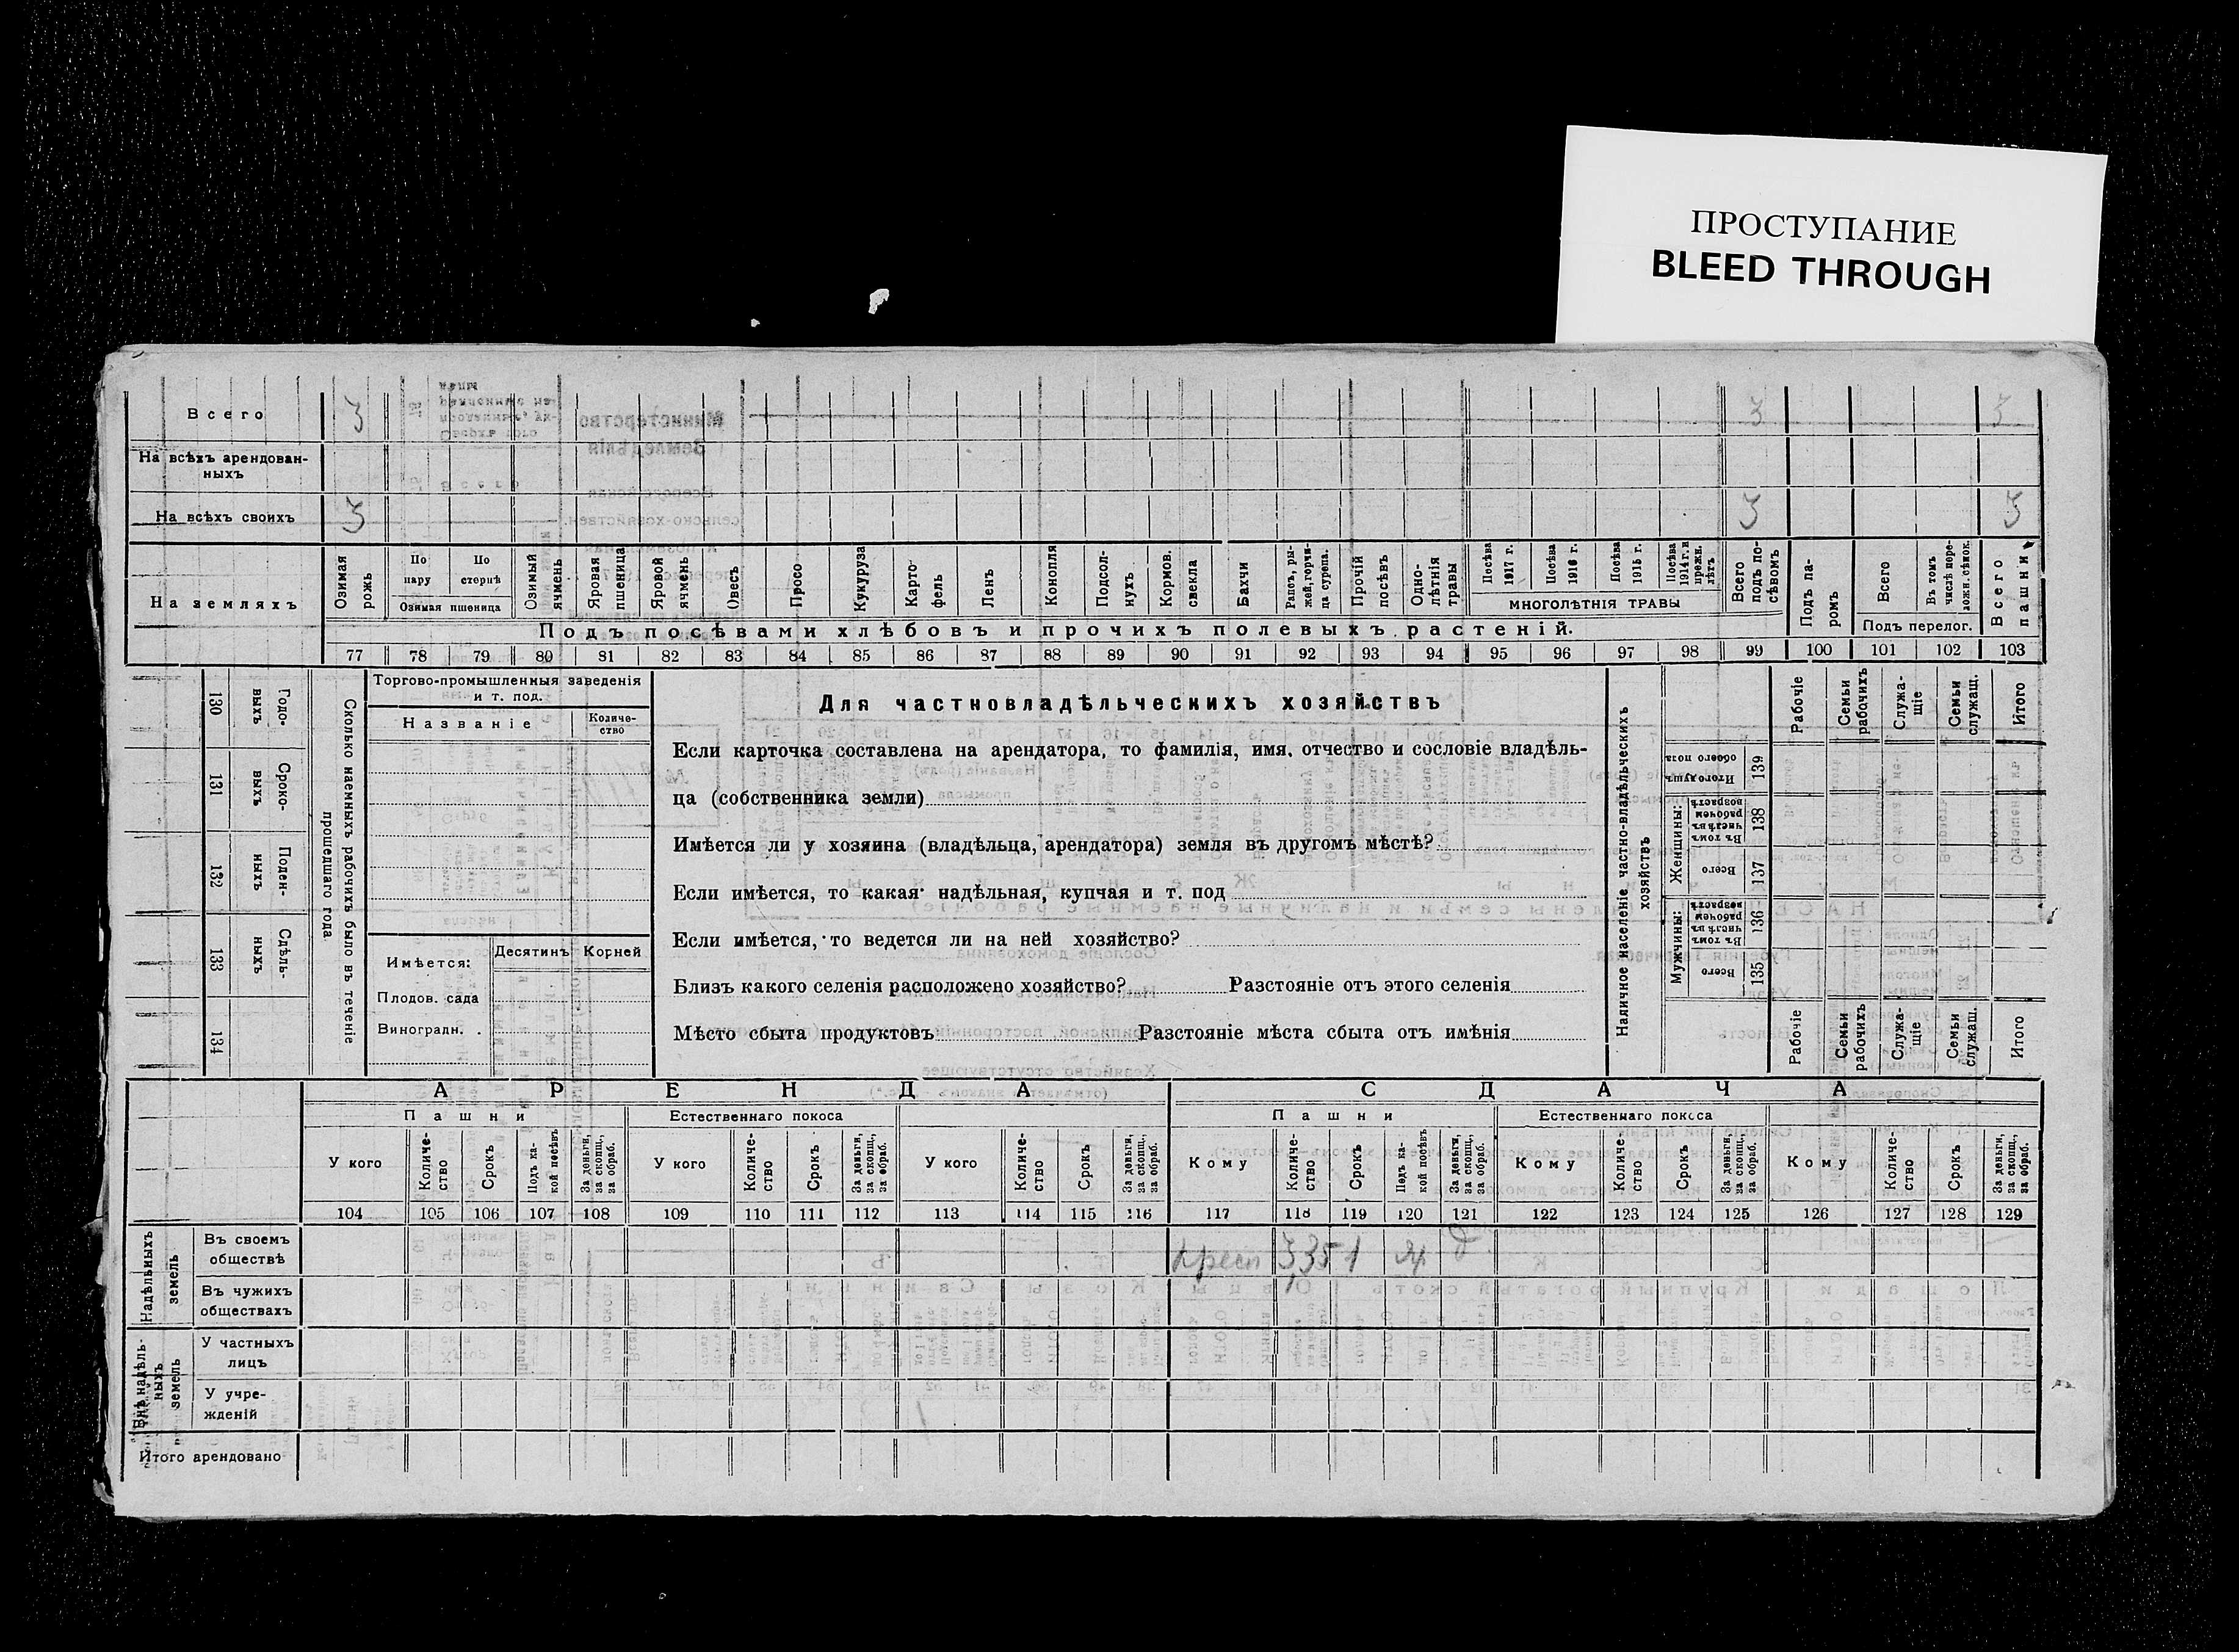 ПРОСТУПАНИЕ
BLEED THROUGH
Всего 3 3 3
На всѣхъ арендован-
ныхъ
На всѣхъ своихъ 3 3 3
На земляхъ
Озимая рожь
По пару
По стернѣ
Озимая пшеница
Озимый ячмень
Яровая пшеница
Яровой ячмень
Овесъ
Просо
Кукуруза
Карто-
фель
Ленъ
Конопля
Подсол-
нухъ
Кормов.
свекла
Бахчи
Рапсъ, ры-
жей, горчи-
ца сурепа.
Прочій
посѣвъ
Одно-
лѣтнія
травы
Посѣва
1917 г.
Посѣва
1916 г.
Посѣва
1915 г.
Посѣва
1914 г. и
прежн.
лѣтъ
МНОГОЛѢТНІЯ ТРАВЫ
Всего
подъ по-
сѣвомъ
Подъ па-
ромъ
Всего
Въ томъ
числѣ пере-
ложн. сѣнок.
Подъ перелог.
Всего
пашни
Подъ посѣвами хлѣбовъ и прочихъ полевыхъ растеній.
77 78 79 80 81 82 83 84 85 86 87 88 89 90 91 92 93 94 95 96 97 98 99 100 101 102 103
130 Годо-
выхъ
131 Сроко-
выхъ
132 Поден-
ныхъ
133 Сдѣль-
ныхъ
134
Сколько наемныхъ рабочихъ было въ теченіе
прошедшаго года
Торгово-промышленныя заведенія
и т. под.
Названіе
Количе-
ство
Имѣется:
Десятинъ
Корней
Плодов. сада
Виноградн.
Для частновладѣльческихъ хозяйствъ
Если карточка составлена на арендатора, то фамилія, имя, отчество и сословіе владѣль-
ца (собственника земли)
Имѣется ли у хозяина (владѣльца, арендатора) земля въ другомъ мѣстѣ?
Если имѣется, то какая: надѣльная, купчая и т. под
Если имѣется, то ведется ли на ней хозяйство?
Близъ какого селенія расположено хозяйство? Разстояніе отъ этого селенія
Мѣсто сбыта продуктовъ Разстояніе мѣста сбыта отъ имѣнія
Наличное населеніе частно-владѣльческихъ
хозяйствъ
Рабочіе
Семьи
рабочихъ
Служа-
щіе
Семьи
служащ.
Итого
Итого душъ
обоего пола
139
Женщины:
Въ томъ
числѣ въ
рабочем
возрастѣ
138
Всего
137
Мужчины:
Въ томъ
числѣ въ
рабочем
возрастѣ
136
Всего
135
Рабочіе
Семьи
рабочихъ
Служа-
щіе
Семьи
служащ.
Итого
АРЕНДА
СДАЧА
Пашни
Естественнаго покоса
Пашни
Естественнаго покоса
У кого
Количе-
ство
Срокъ
Подъ ка-
кой посѣвъ
За деньги,
за скопщ.,
за обраб.
У кого
Количе-
ство
Срокъ
За деньги,
за скопщ.,
за обраб.
У кого
Количе-
ство
Срокъ
За деньги,
за скопщ.,
за обраб.
Кому
Количе-
ство
Срокъ
Подъ ка-
кой посѣвъ
За деньги,
за скопщ.,
за обраб.
Кому
Количе-
ство
Срокъ
За деньги,
за скопщ.,
за обраб.
Кому
Количе-
ство
Срокъ
За деньги,
за скопщ.,
за обраб.
104 105 106 107 108 109 110 111 112 113 114 115 116 117 118 119 120 121 122 123 124 125 126 127 128 129
Надѣльныхъ
земель
Въ своемъ
обществѣ
Въ чужихъ
обществахъ
Внѣ надѣль-
ныхъ
земель
У частныхъ
лицъ
У учре-
жденій
Итого арендовано